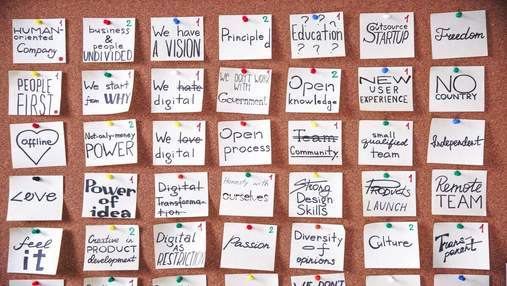 HUMAN-
oriented
Company.
2
business
&
people
UNDIVIDED
1
We have
A VISION
2
Principled
1
Education
? ? ? ?
1
Outsource
STARTUP
Freedom
1
PEOPLE
FIRST.
1
We start
from WHY
1
We hate
digital
2
WE DON'T WORK
with
Government.
2
Open
knowledge
2
NEW
USER
EXPERIENCE
NO
COUNTRY
offline
2
Not-only-money
POWER
1
We love
digital
Open
process
1
Team
Community.
1
small
qualified
team
Independent
Love
1
Power of
idea
1
Digital
Transforma-
tion
Honesty with
ourselves
Strong
Design
Skills
1
Products
LAUNCH
2
Remote
TEAM
feel
it
2
Creative in
PRODUCT
development
1
Digital
AS
RESTRICTION
2
Passion
Diversity
of
opinions
2
Culture
1
Trans-
parent
1
2
1
WE DON'T